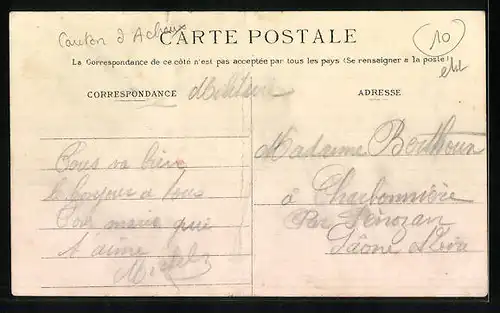 Canton d'Acheux
CARTE POSTALE
10
La Correspondance de ce côté n'est pas acceptée par tous les pays (Se renseigner à la poste)
CORRESPONDANCE
Militaire
ADRESSE
Tous va bien
le bonjour a tous
Ton mari qui
t'aime
Michel
Madame Berthoun
à Charbonnière
Par Sénozan
Saône & Loire